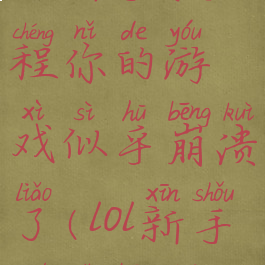 chéng nǐ de yóu
程你的游
xì sì hū bēng kuì
戏似乎崩溃
liǎo xīn shǒu
了(lol新手